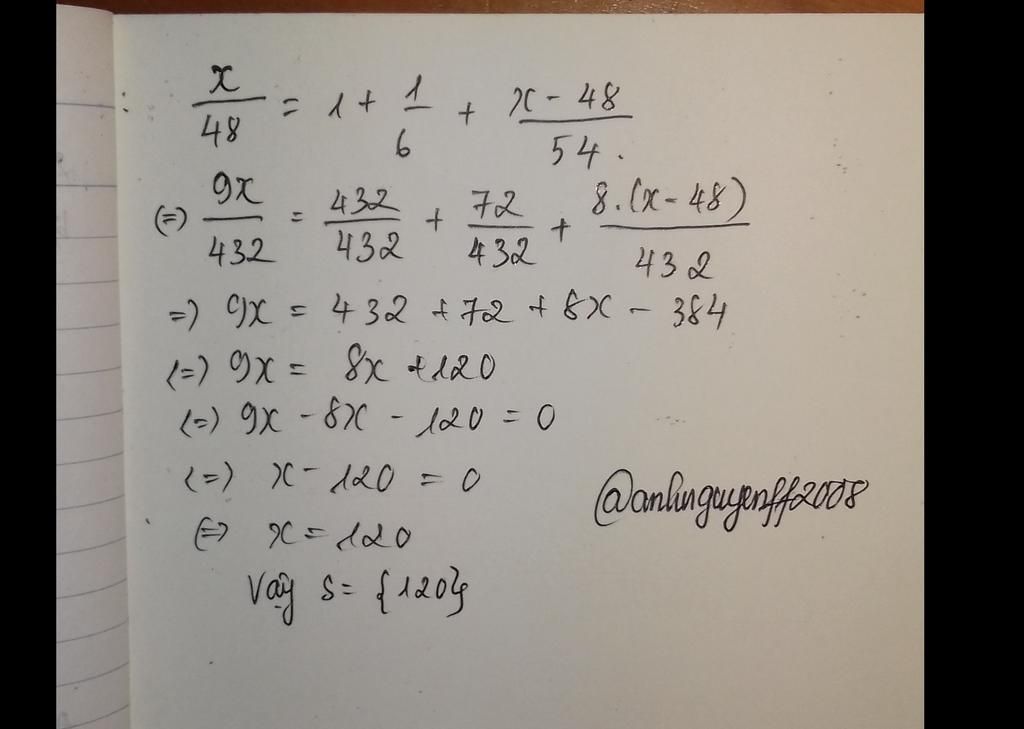 x/48 = 1 + 1/6 + x - 48/54.
(=) 9x/432 = 432/432 + 72/432 + 8.(x - 48)/432
=) 9x = 432 + 72 + 8x - 384
(=) 9x = 8x + 120
(=) 9x - 8x - 120 = 0
(=) x - 120 = 0
(=) x = 120
Vậy S = {120}
@anhnguyenff2008